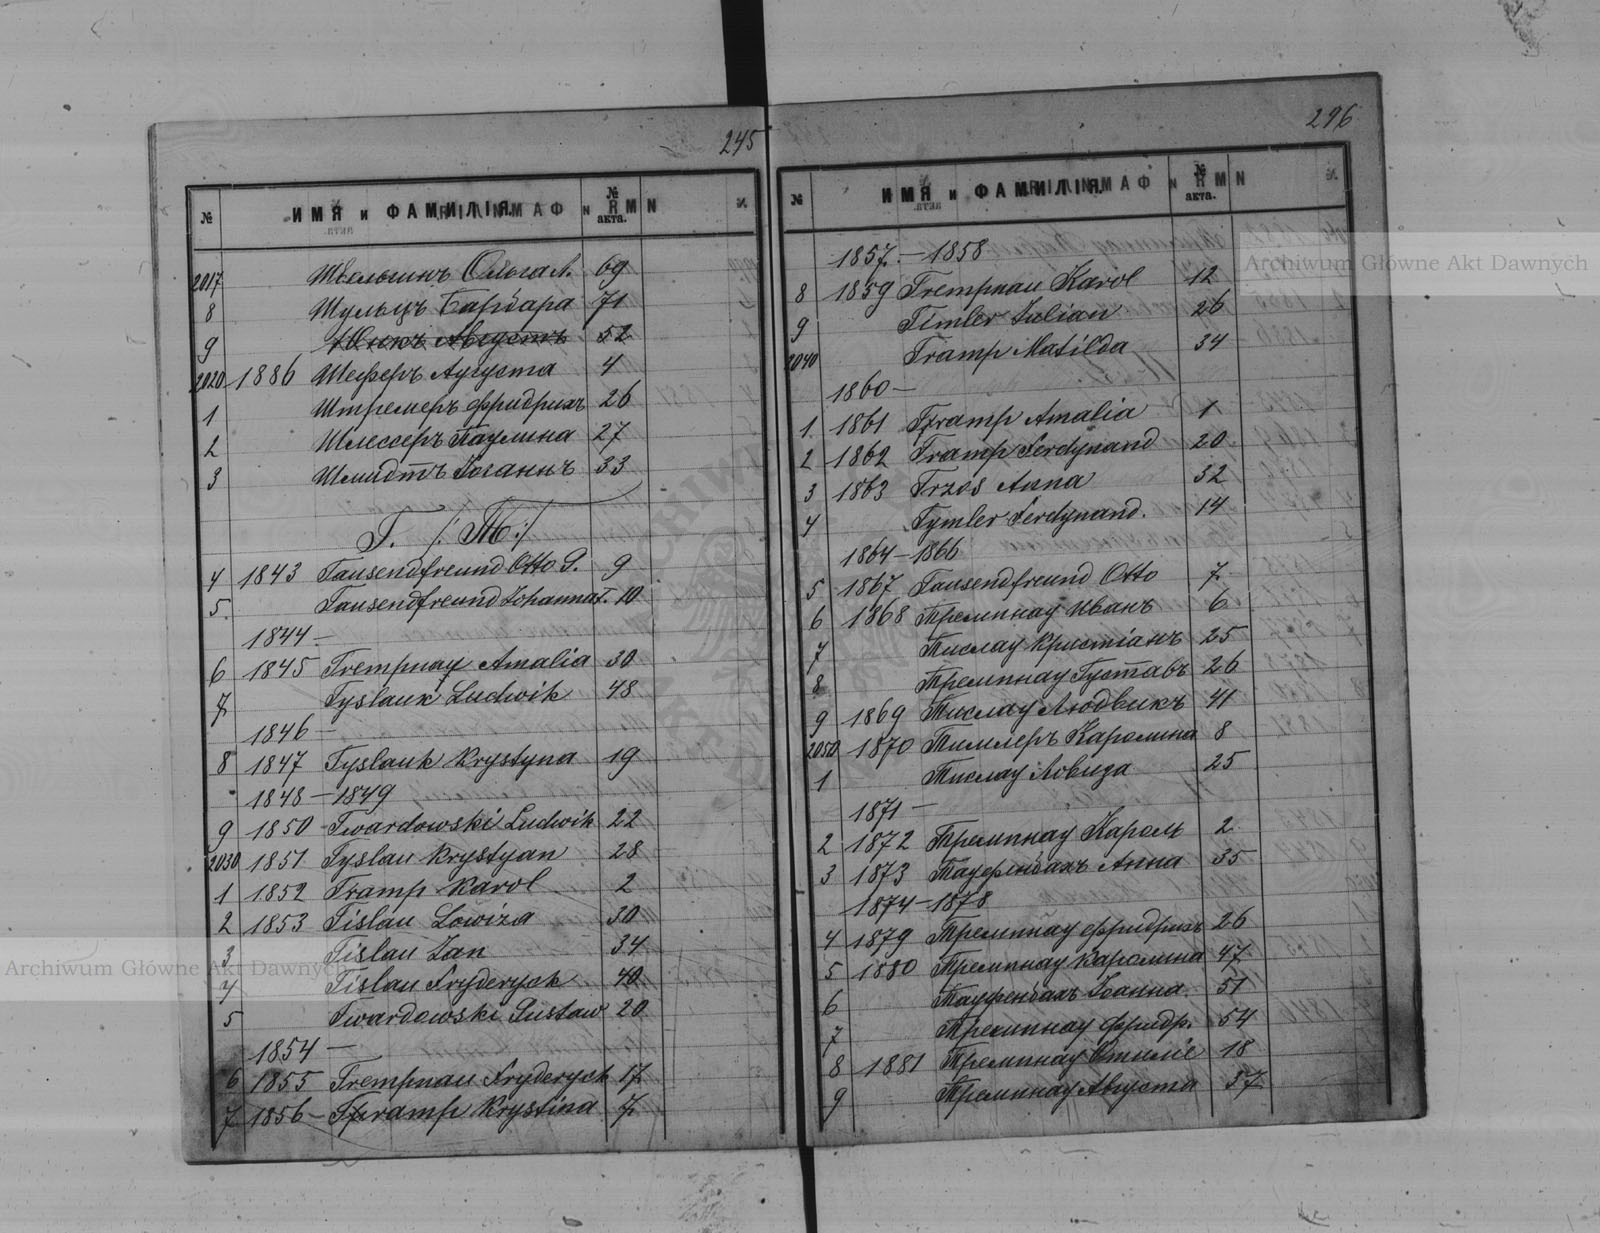 245
№ ИМЯ и ФАМИЛІЯ № акта.
2017 Швельгинъ Ольга А. 69
8 Шульцъ Барбара 71
9 Юнкъ Августъ 52
2020 1886 Шеферъ Аугуста 4
1 Штремеръ Фридрихъ 26
2 Шлессеръ Паулина 27
3 Шмидтъ Іоганнъ 33
T. /:Т:/
4 1843 Tausendfreund Otto G. 9
5. Tausendfreund Johanna T. 10
1844 —
6 1845 Trempnay Amalia 30
7 Tyslauk Ludwik 48
1846 —
8 1847 Tyslauk Krystyna 19
1848 — 1849
9 1850 Twardowski Ludwik 22
2030 1851 Tyslau Krystyan 28
1 1852 Tramp Karol 2
2 1853 Tislau Lowiza 30
3 Tislau Jan 34
4 Tislau Fryderyck 40
5 Twardowski Gustaw 20
1854 —
6 1855 Trempnau Fryderyck 17
7 1856 — Tramp Krystina 7
296
№ ИМЯ и ФАМИЛІЯ № акта.
1857. — 1858
8 1859 Trempnau Karol 12
9 Timler Julian 26
2040 Tramp Matilda 34
1860 —
1. 1861 Tramp Amalia 1
2 1862 Tramp Ferdynand 20
3 1863 Trzos Anna 32
4 Tymler Ferdynand. 14
1864 — 1866
5 1867 Tausendfreund Otto 7
6 1868 Тремпнау Иванъ 6
7 Тислау Кристіанъ 25
8 Тремпнау Густавъ 26
9 1869 Тислау Людвикъ 41
2050 1870 Тимлеръ Каролина 8
1 Тислау Ловиза 25
1871 —
2 1872 Тремпнау Кароль 2
3 1873 Тауфенбахъ Анна 35
1874 — 1878
4 1879 Тремпнау Фридрихъ 26
5 1880 Тремпнау Каролина 47
6 Тауфенбахъ Іоанна 51
7 Тремпнау Фридр. 54
8 1881 Тремпнау Отиліе 18
9 Тремпнау Августа 57
Archiwum Główne Akt Dawnych
Archiwum Główne Akt Dawnych